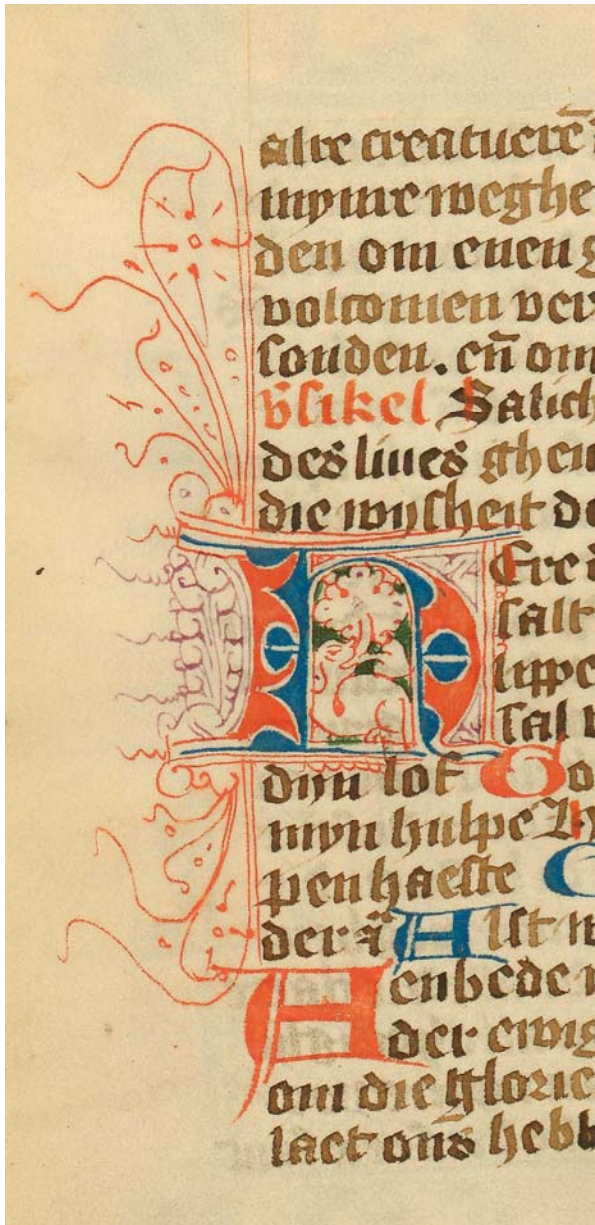 alre creatuerē
mynre weghe
den om euen g
volcomen ver
souden. en̄ om
v̄sikel Salich
des liues ghen
die wijsheit de
HEre d
salt
lippe
sal v
dyn lof Go
myn hulpe H
pen haeste G
der ā Alst w
Aenbede
der ewig
om die glorie
laet ons hebb